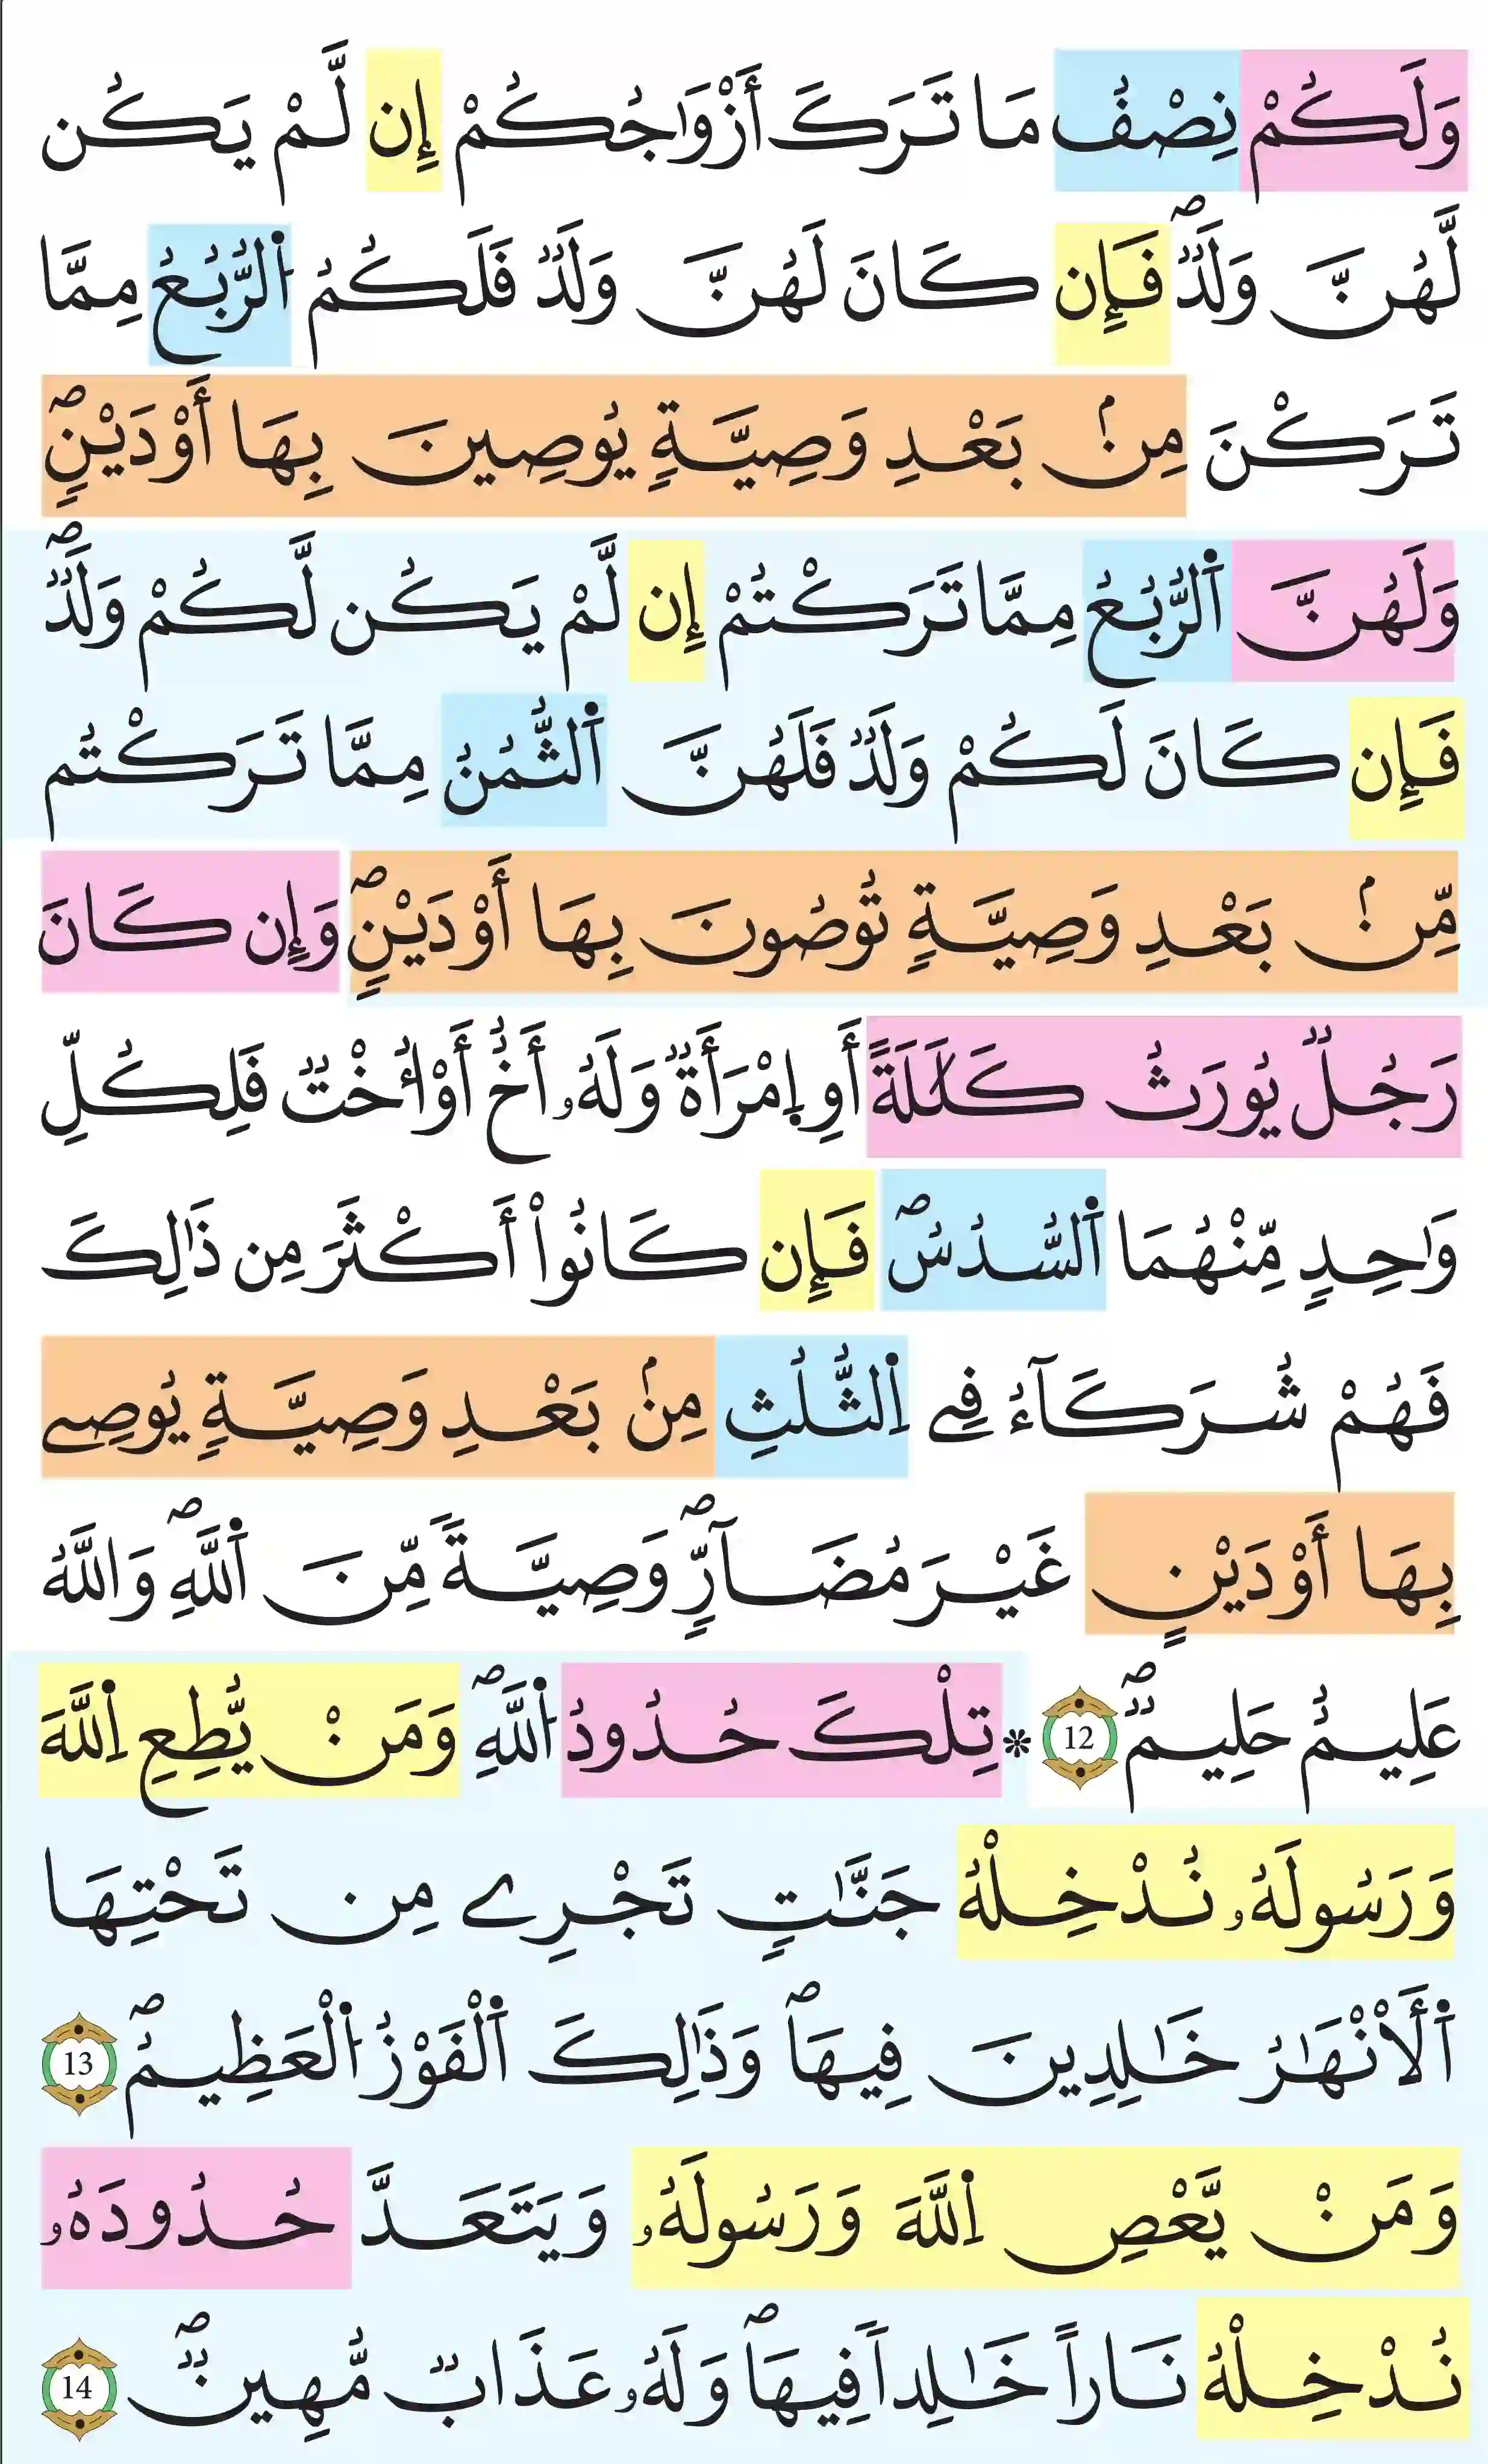 وَلَكُمْ نِصْفُ مَا تَرَكَ أَزْوَٰجُكُمْ إِن لَّمْ يَكُن
لَّهُنَّ وَلَدٞۖ فَإِن كَانَ لَهُنَّ وَلَدٞ فَلَكُمُ اُ۬لرُّبُعُ مِمَّا
تَرَكْنَ مِنۢ بَعْدِ وَصِيَّةٖ يُوصِينَ بِهَا أَوْ دَيْنٖۖ
وَلَهُنَّ اَ۬لرُّبُعُ مِمَّا تَرَكْتُمْ إِن لَّمْ يَكُن لَّكُمْ وَلَدٞۖ
فَإِن كَانَ لَكُمْ وَلَدٞ فَلَهُنَّ اَ۬لثُّمُنُ مِمَّا تَرَكْتُم
مِّنۢ بَعْدِ وَصِيَّةٖ تُوصُونَ بِهَا أَوْ دَيْنٖۖ وَإِن كَانَ
رَجُلٞ يُورَثُ كَلَٰلَةً أَوِ اِ۪مْرَأَةٞ وَلَهُۥ أَخٌ أَوُ ا۟خْتٞ فَلِكُلِّ
وَٰحِدٖ مِّنْهُمَا اَ۬لسُّدُسُۖ فَإِن كَانُواْ أَكْثَرَ مِن ذَٰلِكَ
فَهُمْ شُرَكَآءُ فِے اِ۬لثُّلُثِ مِنۢ بَعْدِ وَصِيَّةٖ يُوصِے
بِهَا أَوْ دَيْنٍ غَيْرَ مُضَآرّٖۖ وَصِيَّةٗ مِّنَ اَ۬للَّهِۖ وَاللَّهُ
عَلِيمٌ حَلِيمٞۖ 12 * تِلْكَ حُدُودُ اُ۬للَّهِۖ وَمَنْ يُّطِعِ اِ۬للَّهَ
وَرَسُولَهُۥ نُدْخِلْهُ جَنَّٰتٖ تَجْرِے مِن تَحْتِهَا
اَ۬لَانْهَٰرُ خَٰلِدِينَ فِيهَاۖ وَذَٰلِكَ اَ۬لْفَوْزُ اُ۬لْعَظِيمُۖ 13
وَمَنْ يَّعْصِ اِ۬للَّهَ وَرَسُولَهُۥ وَيَتَعَدَّ حُدُودَهُۥ
نُدْخِلْهُ نَاراً خَٰلِداٗ فِيهَاۖ وَلَهُۥ عَذَابٞ مُّهِينٞۖ 14